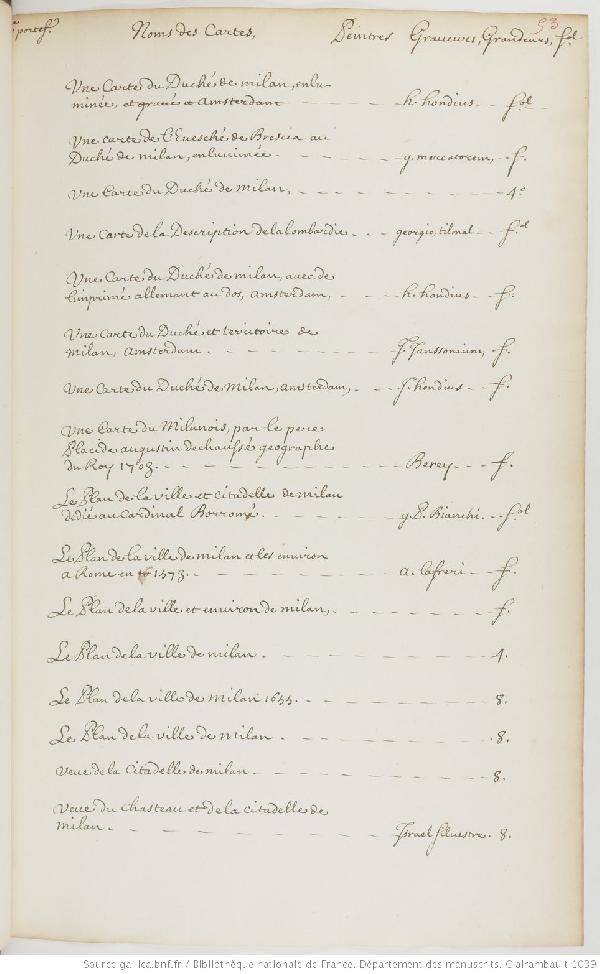 53
portef.
Noms des Cartes, Peintres Graveurs, Grandeurs, fol
Une Carte du Duché de milan, enlu-
minée, et gravée a Amsterdam h. hondius fol
Une carte de l'Evesché de Brescia au
Duché de milan, enluminée g. mercatorem, f.
Une Carte du Duché de milan, 4°
Une Carte de la Description de la lombardie georgio, tilmal fol
Une Carte du Duché de milan, avec de
l'imprimé allemant au dos, Amsterdam, h. hondius f.
Une Carte du Duché et territoire de
milan, Amsterdam J. Janssonium, f.
Une Carte du Duché de Milan, Amsterdam, J. hondius f.
Une Carte du Milanois, par le pere
Placide augustin dechaussé geographe
du Roy 1703. Berey f.
Le Plan de la ville et citadelle de milan
dedié au Cardinal Borromé. g. P. Bianchi. fol
Le Plan de la ville de milan et les environ
a Rome en 1573. a. lafreri f.
Le Plan de la ville et environ de milan, f.
Le Plan de la ville de milan 4.
Le Plan de la ville de milan 1655. 8.
Le Plan de la ville de milan 8.
Veue de la Citadelle de milan 8.
Veue du Chasteau et de la citadelle de
milan. Israel silvestre. 8.
Source gallica.bnf.fr / Bibliothèque nationale de France. Département des manuscrits. Clairambault 1039